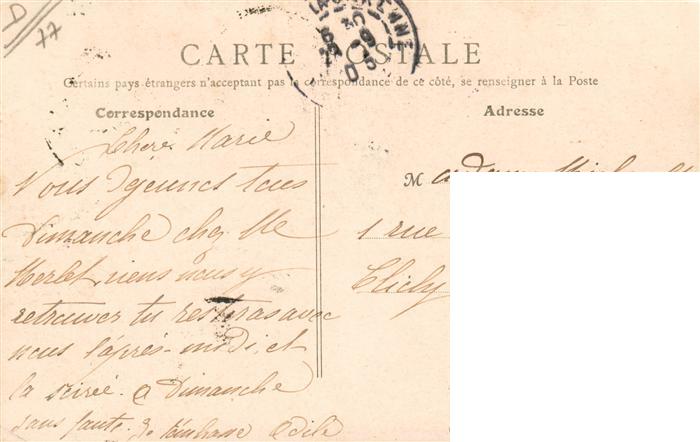 D
77
LA GARENNE
CARTE POSTALE
Certains pays étrangers n'acceptant pas la correspondance de ce côté, se renseigner à la Poste
Correspondance
Adresse
Chère Marie
Nous dejeunes tous
Dimanche chez Me
Merlet, viens nous y
retrouver tu resteras avec
nous l'après-midi, et
la soirée. a Dimanche
sans faute. Je t'embrasse Odile
Madame
1 rue
Clichy